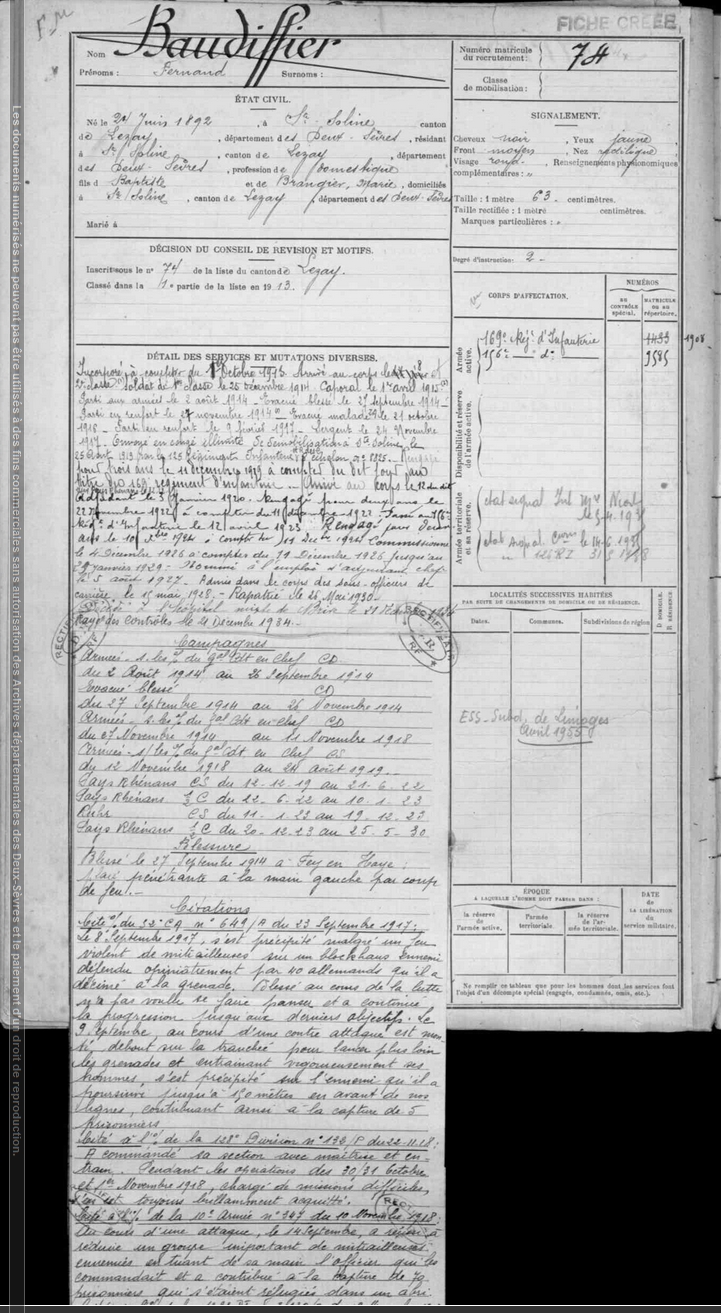 FICHE CRÉÉE
Nom Baudiffier
Prénoms : Fernand Surnoms :
Numéro matricule du recrutement : 74
Classe de mobilisation :
ÉTAT CIVIL.
Né le 24 Juin 1892, à St Soline canton
de Lezay, département des Deux-Sèvres, résidant
à St Soline, canton de Lezay, département
des Deux-Sèvres, profession de Domestique
fils d Baptiste et de Brangier, Marie, domiciliés
à St Soline, canton de Lezay, département des Deux-Sèvres
Marié à
SIGNALEMENT.
Cheveux noir, Yeux jaune
Front moyen, Nez rectiligne
Visage rond, Renseignements physionomiques
complémentaires : "
Taille : 1 mètre 63 centimètres.
Taille rectifiée : 1 mètre centimètres.
Marques particulières : "
Degré d'instruction : 2
DÉCISION DU CONSEIL DE REVISION ET MOTIFS.
Inscrit sous le n° 74 de la liste du canton de Lezay.
Classé dans la 1e partie de la liste en 1913.
CORPS D'AFFECTATION.
NUMÉROS
AU CONTRÔLE spécial.
MATRICULE OU AU répertoire.
Armée active.
169e Régt d'Infanterie
156e do
3585
1908
Disponibilité et réserve de l'armée active.
Armée territoriale et sa réserve.
DÉTAIL DES SERVICES ET MUTATIONS DIVERSES.
Incorporé à compter du 1er Octobre 1913. Arrivé au corps le
2e classe soldat de 1e classe le 25 Décembre 1914 Caporal le 1er avril 1915
Parti aux armées le 2 août 1914 - Evacué blessé le 27 septembre 1914 -
Parti en renfort le 27 novembre 1914 - Evacué malade le 21 octobre
1916 - Parti en renfort le 9 février 1917 - Sergent le 24 Novembre
1917. Envoyé en congé illimité de démobilisation à Ste Soline le
25 Août 1919 par le 125 Régiment Infanterie
pour trois ans le 11 décembre 1919 à compter du dit jour au
titre du 169 régiment d'infanterie - Arrivé au corps le 12 du dit
janvier 1920. Rengagé pour deux ans le
22 novembre 1922 à compter du 11 décembre 1922. Passé au 156
Régt d'Infanterie le 12 avril 1923 Rengagé pour deux
ans le 10 1924 à compter du 11 Déc 1924 Commissionné
le 4 Décembre 1926 à compter du 11 Décembre 1926 jusqu'au
29 janvier 1929 - Nommé à l'emploi d'adjudant chef
le 5 août 1927 - Admis dans le corps des sous-officiers de
carrière le 15 mai 1928. - Rapatrié le 26 Mai 1930 -
Décédé à l'hôpital mixte de
Rayé des Contrôles le 4 Décembre 1934 -
Campagnes
Armées s. les o/ du gal Cdt en Chef CD
du 2 Août 1914 au 26 Septembre 1914
Evacué blessé CD
du 27 Septembre 1914 au 26 Novembre 1914
Armées s. les o/ du gal Cdt en chef CD
du 27 Novembre 1914 au 11 Novembre 1918
Armées s/ les o/ du gal Cdt en chef CS
du 12 Novembre 1918 au 24 Août 1919.
Pays Rhénans CS du 12.12.19 au 21.6.22
Pays Rhénans ½ C du 22.6.22 au 10.1.23
Ruhr CS du 11.1.23 au 19.12.23
Pays Rhénans ½ C du 20.12.23 au 25.5.30
Blessure
Blessé le 27 Septembre 1914 à Fey en Haye :
plaie pénétrante à la main gauche par coup
de feu. -
Citations
Cité o/ du 32e CA n° 649/A du 23 Septembre 1917 :
le 8 Septembre 1917, s'est précipité malgré un feu
violent de mitrailleuses sur un blockhaus ennemi
défendu opiniâtrement par 40 allemands qu'il a
décimé à la grenade. Blessé au cours de la lutte
n'a pas voulu se faire panser et a continué
la progression jusqu'aux derniers objectifs. Le
9 Septembre, au cours d'une contre attaque est mon-
té debout sur la tranchée pour lancer plus loin
les grenades et entrainant vigoureusement ses
hommes, s'est précipité sur l'ennemi qu'il a
poursuivi jusqu'à 150 mètres en avant de nos
lignes, contribuant ainsi à la capture de 5
prisonniers
Cité à l'o/ de la 128e Division n° 132/P du 22.11.18 :
A commandé sa section avec maitrise et en-
train. Pendant les opérations des 30/31 Octobre
et 1er Novembre 1918, chargé de missions difficiles,
s'en est toujours brillamment acquitté.
Cité à l'o/ de la 10e Armée n° 347 du 10 Novembre 1918 :
Au cours d'une attaque, le 14 Septembre, a réussi à
réduire un groupe important de mitrailleuses
ennemies en tuant de sa main l'officier qui les
commandait et a contribué à la capture de 79
prisonniers qui s'étaient réfugiés dans un abri
LOCALITÉS SUCCESSIVES HABITÉES
PAR SUITE DE CHANGEMENTS DE DOMICILE OU DE RÉSIDENCE.
Dates. Communes. Subdivisions de région. D. DOMICILE. R. RÉSIDENCE
ESS - Subd. de Limoges
Avril 1955
ÉPOQUE
À LAQUELLE L'HOMME DOIT PASSER DANS :
la réserve de l'armée active.
l'armée territoriale.
la réserve de l'armée territoriale.
DATE de LA LIBÉRATION du service militaire.
Ne remplir ce tableau que pour les hommes dont les services font
l'objet d'un décompte spécial (engagés, condamnés, omis, etc.).
Les documents numérisés ne peuvent pas être utilisés à des fins commerciales sans autorisation des Archives départementales des Deux-Sèvres et le paiement d'un droit de reproduction.